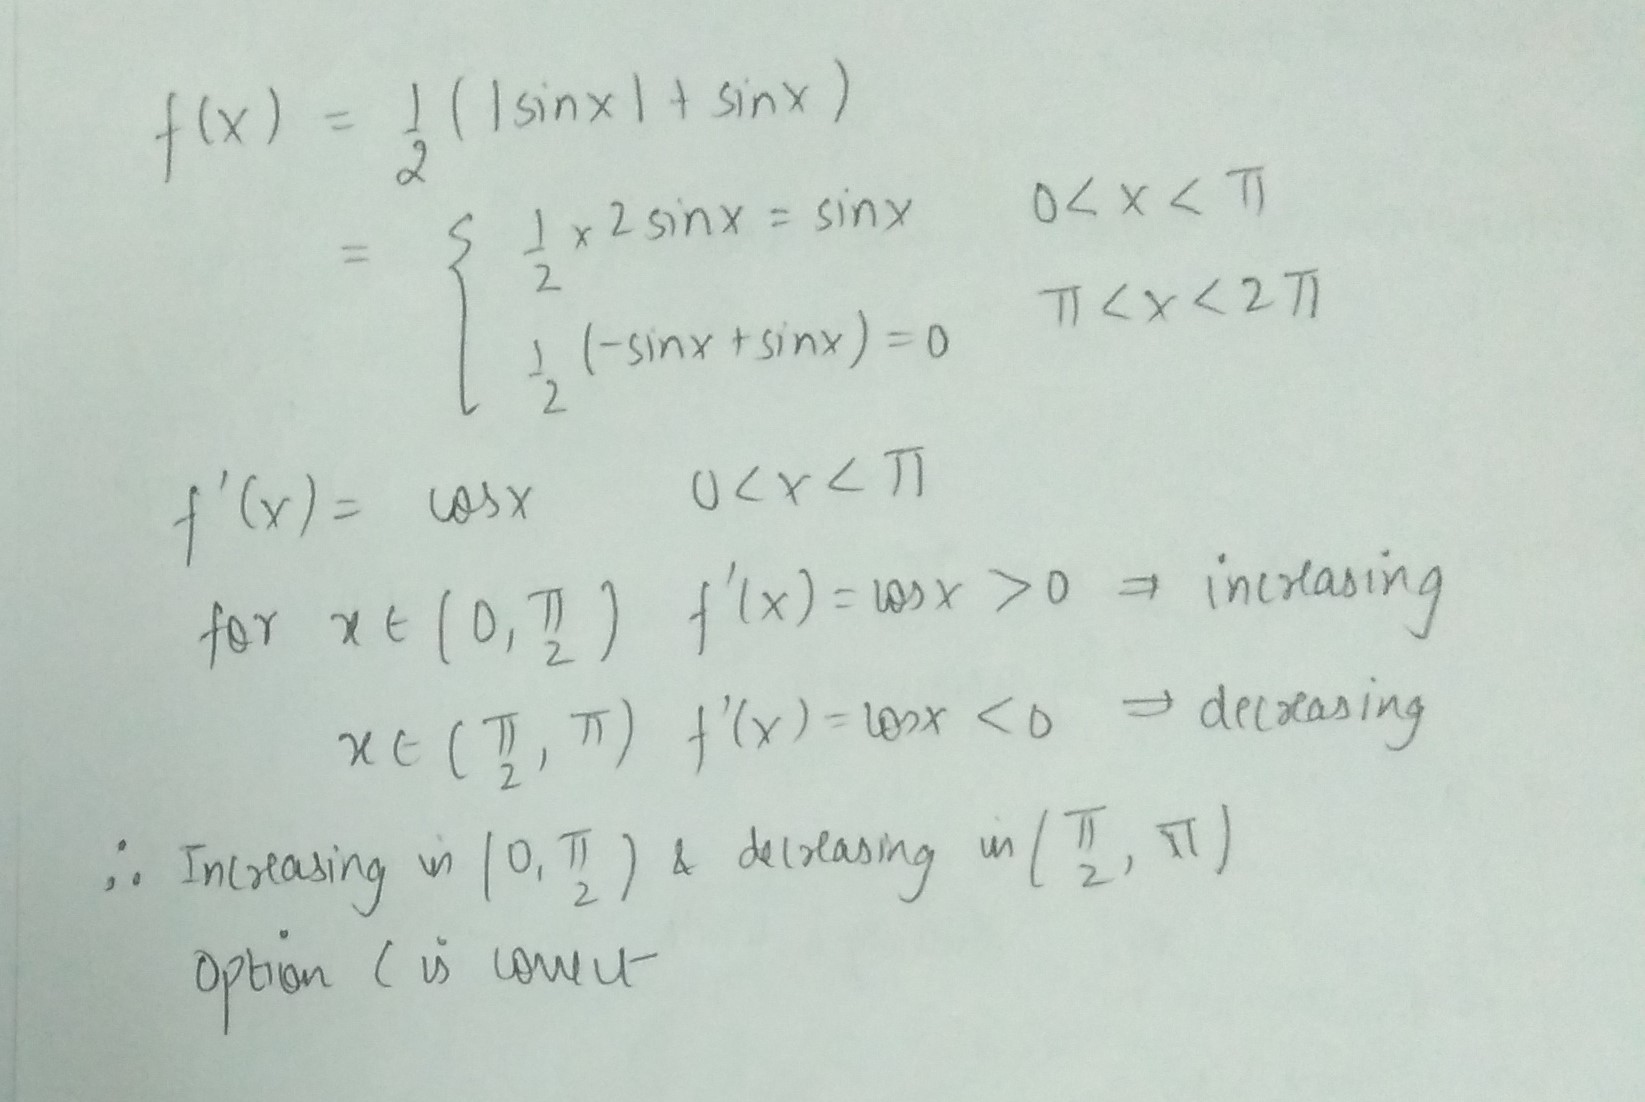 f(x) = 1/2 ( |sinx| + sinx )
= { 1/2 x 2 sinx = sinx 0 < x < π
1/2 (-sinx + sinx) = 0 π < x < 2π
f'(x) = cosx 0 < x < π
for x ∈ (0, π/2) f'(x) = cosx > 0 ⇒ increasing
x ∈ (π/2, π) f'(x) = cosx < 0 ⇒ decreasing
∴ Increasing in (0, π/2) & decreasing in (π/2, π)
option C is correct